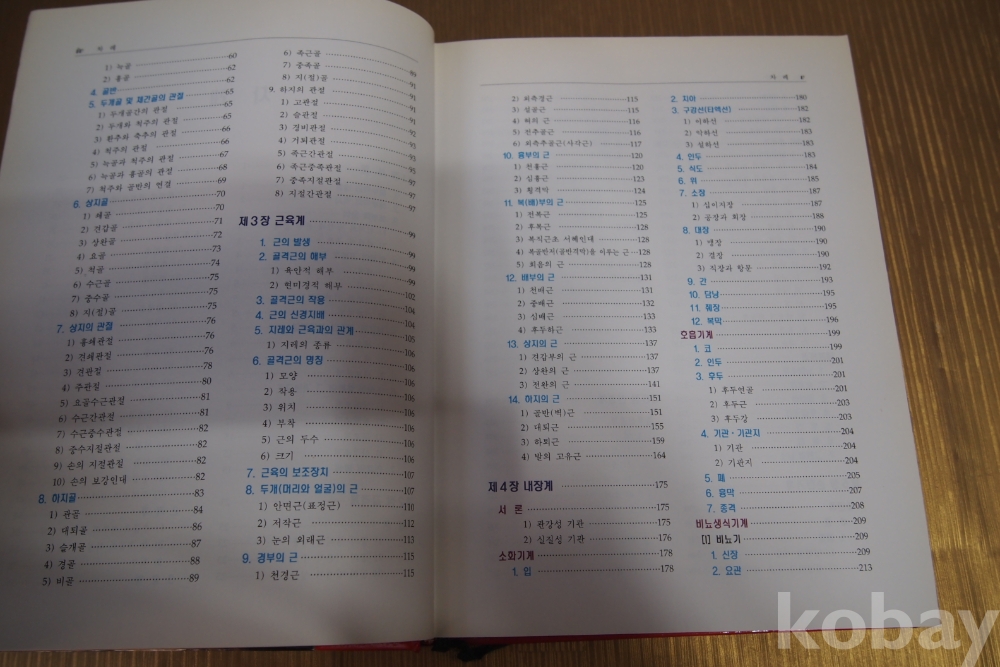 차 례
1) 늑골 60
2) 흉골 62
4. 골반 62
5. 두개골 및 체간골의 관절 65
1) 두개골간의 관절 65
2) 두개와 척주의 관절 65
3) 환추와 축추의 관절 66
4) 척주의 관절 66
5) 늑골과 척주의 관절 67
6) 늑골과 흉골의 관절 68
7) 척주와 골반의 연결 69
6. 상지골 70
1) 쇄골 70
2) 견갑골 71
3) 상완골 72
4) 요골 73
5) 척골 74
6) 수근골 75
7) 중수골 75
8) 지(절)골 75
7. 상지의 관절 76
1) 흉쇄관절 76
2) 견쇄관절 76
3) 견관절 78
4) 주관절 80
5) 요골수근관절 81
6) 수근간관절 81
7) 수근중수관절 82
8) 중수지절관절 82
9) 손의 지절관절 82
10) 손의 보강인대 82
8. 하지골 83
1) 관골 84
2) 대퇴골 86
3) 슬개골 87
4) 경골 88
5) 비골 89
6) 족근골 89
7) 중족골 91
8) 지(절)골 91
9. 하지의 관절 91
1) 고관절 91
2) 슬관절
3) 경비관절
4) 거퇴관절
5) 족근간관절
6) 족근중족관절 97
7) 중족지절관절 97
8) 지절간관절 97
제3장 근육계 99
1. 근의 발생 99
2. 골격근의 해부 99
1) 육안적 해부 99
2) 현미경적 해부
3. 골격근의 작용 102
4. 근의 신경지배 104
5. 지레와 근육과의 관계 105
1) 지레의 종류 106
6. 골격근의 명칭 106
1) 모양 106
2) 작용 106
3) 위치 106
4) 부착 106
5) 근의 두수 106
6) 크기 106
7. 근육의 보조장치 107
8. 두개(머리와 얼굴)의 근 107
1) 안면근(표정근) 110
2) 저작근 112
3) 눈의 외래근 113
9. 경부의 근 115
1) 천경근 115
차 례
2) 외측경근 115
3) 설골근 115
4) 혀의 근 116
5) 전추골근 116
6) 외측추골근(사각근) 117
10. 흉부의 근 120
1) 천흉근 120
2) 심흉근 123
3) 횡격막 124
11. 복(배)부의 근 125
1) 전복근 125
2) 후복근 128
3) 복직근초 서혜인대 128
4) 복골반저(골반격막)을 이루는 근 128
5) 회음의 근 128
12. 배부의 근 131
1) 천배근 131
2) 중배근 132
3) 심배근 133
4) 후두하근 133
13. 상지의 근 137
1) 견갑부의 근 137
2) 상완의 근 137
3) 전완의 근 141
14. 하지의 근 151
1) 골반(벽)근 151
2) 대퇴근 155
3) 하퇴근 159
4) 발의 고유근 164
제4장 내장계 175
서 론 175
1) 관강성 기관 175
2) 실질성 기관 176
소화기계 178
1. 입 178
2. 치아 180
3. 구강선(타액선) 182
1) 이하선 182
2) 악하선 183
3) 설하선 183
4. 인두 183
5. 식도 184
6. 위 185
7. 소장 187
1) 십이지장 187
2) 공장과 회장 188
8. 대장 190
1) 맹장 190
2) 결장 190
3) 직장과 항문 192
9. 간 193
10. 담낭 194
11. 췌장 195
12. 복막 196
호흡기계 199
1. 코 199
2. 인두 201
3. 후두 201
1) 후두연골 201
2) 후두근 203
3) 후두강 203
4. 기관·기관지 204
1) 기관 204
2) 기관지 204
5. 폐 205
6. 흉막 207
7. 종격 208
비뇨생식기계 209
[I] 비뇨기 209
1. 신장 209
2. 요관 213
kobay